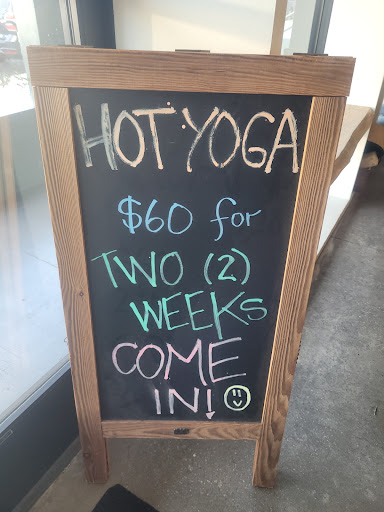 HOT YOGA
$60 for
TWO (2)
WEEKS
COME
IN!